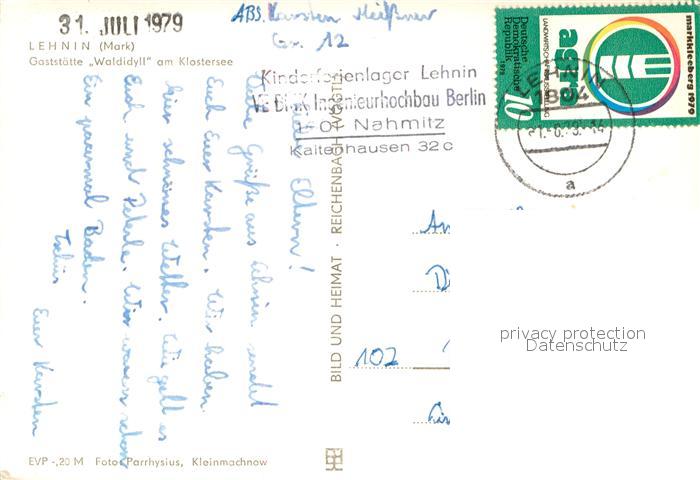 31. JULI 1979
ABS. Karsten Meißner
Gr. 12
LEHNIN (Mark)
Gaststätte „Waldidyll" am Klostersee
Kinderferienlager Lehnin
VE BMK Ingenieurhochbau Berlin
1501 Nahmitz
Kaltenhausen 32c
Deutsche
Demokratische
Republik
1979
LANDWIRTSCHAFTSAUSSTELLUNG
agra
markkleeberg 1979
10
LEHNIN
1804
a
Liebe Eltern!
Viele Grüße aus Lehnin sendet
Euch Euer Karsten. Wir haben
hier schönes Wetter. Wie geht es
Euch und Peterle. Wir waren schon
Ein paarmal Baden.
Tschüs
Euer Karsten
BILD UND HEIMAT · REICHENBACH (VOGTL)
102
privacy protection
Datenschutz
EVP -,20 M Foto: Parrhysius, Kleinmachnow